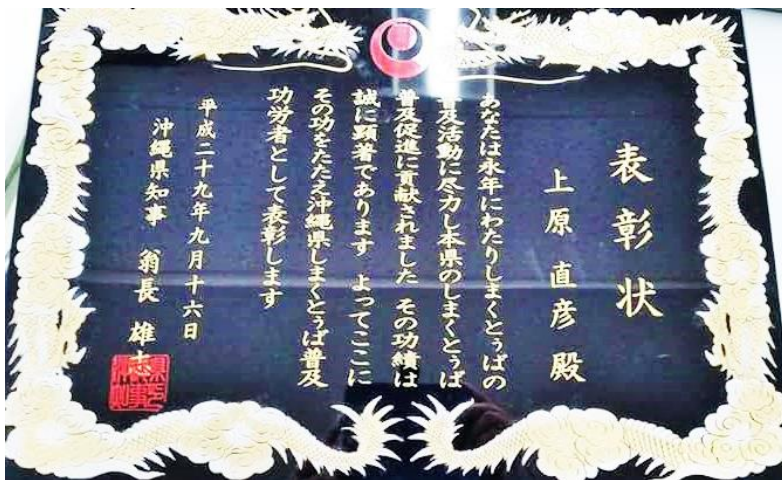 表彰状
上原 直彦 殿
あなたは永年にわたりしまくとぅばの
普及活動に尽力し本県のしまくとぅば
普及促進に貢献されました その功績は
誠に顕著であります よってここに
その功をたたえ沖縄県しまくとぅば普及
功労者として表彰します
平成二十九年九月十六日
沖縄県知事 翁長 雄志